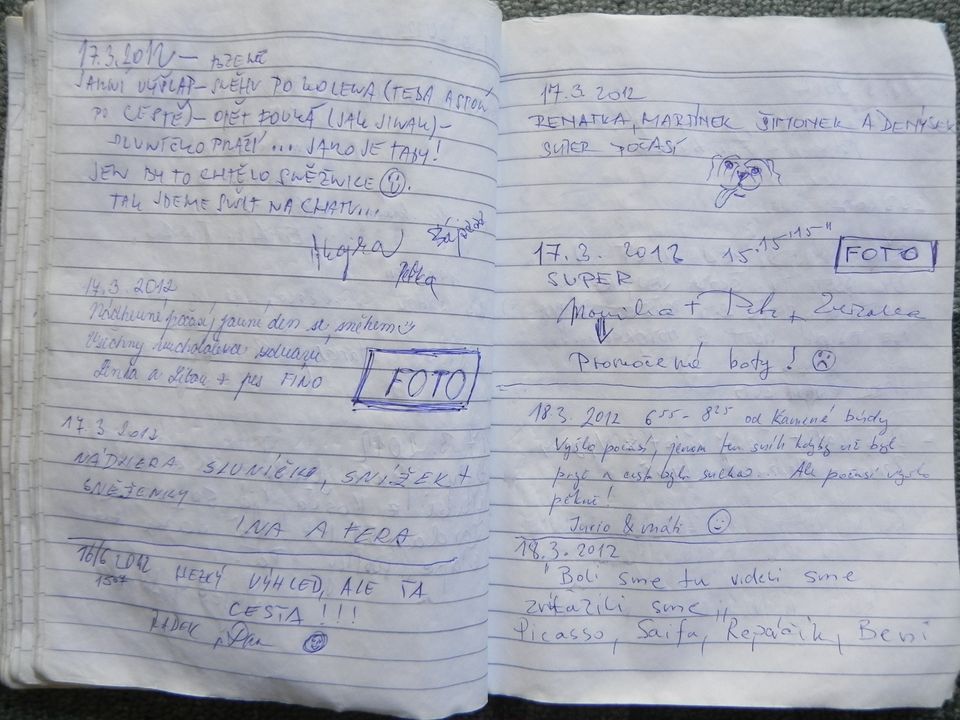 17.3.2012 —
JARNÍ VÝŠLAP – SNĚHU PO KOLENA (TEDA ASTOŇ
PO CESTĚ) – OPĚT FOUKÁ (JAK JINAK) –
SLUNÍČKO PRAŽÍ ... JAKO JE TADY!
JEN BY TO CHTĚLO SNĚŽNICE
TAK JDEME SUŠIT NA CHATU...
17.3.2012
Nádherné počasí, jarní den se sněhem
Všechny
Lenka a Libor + pes FINO
FOTO
17.3 2012
NÁDHERA SLUNÍČKO, SNÍŽEK +
SNĚŽENKY
INA A KERA
16/6 2012 HEZKÝ VÝHLED, ALE TA
15
CESTA!!!
RADEK
17.3. 2012
RENATKA, MARTÍNEK ŠIMONEK A DENÝSEK
SUPER POČASÍ
17.3. 2012 15.15"15" FOTO
SUPER
Monika + Petr + Zuzanka
Promočené boty!
18.3. 2012 6 55 - 8 25 od Kamenné búdy
Vyšlo počasí, jenom ten sníh kdyby už byl
pryč a cesta byla suchá. Ale počasí vyšlo
pěkně!
Jurčo & máti
18.3.2012
"Boli sme tu videli sme
zvíťazili sme,,
Picasso, Saifa, Repáčik, Beni